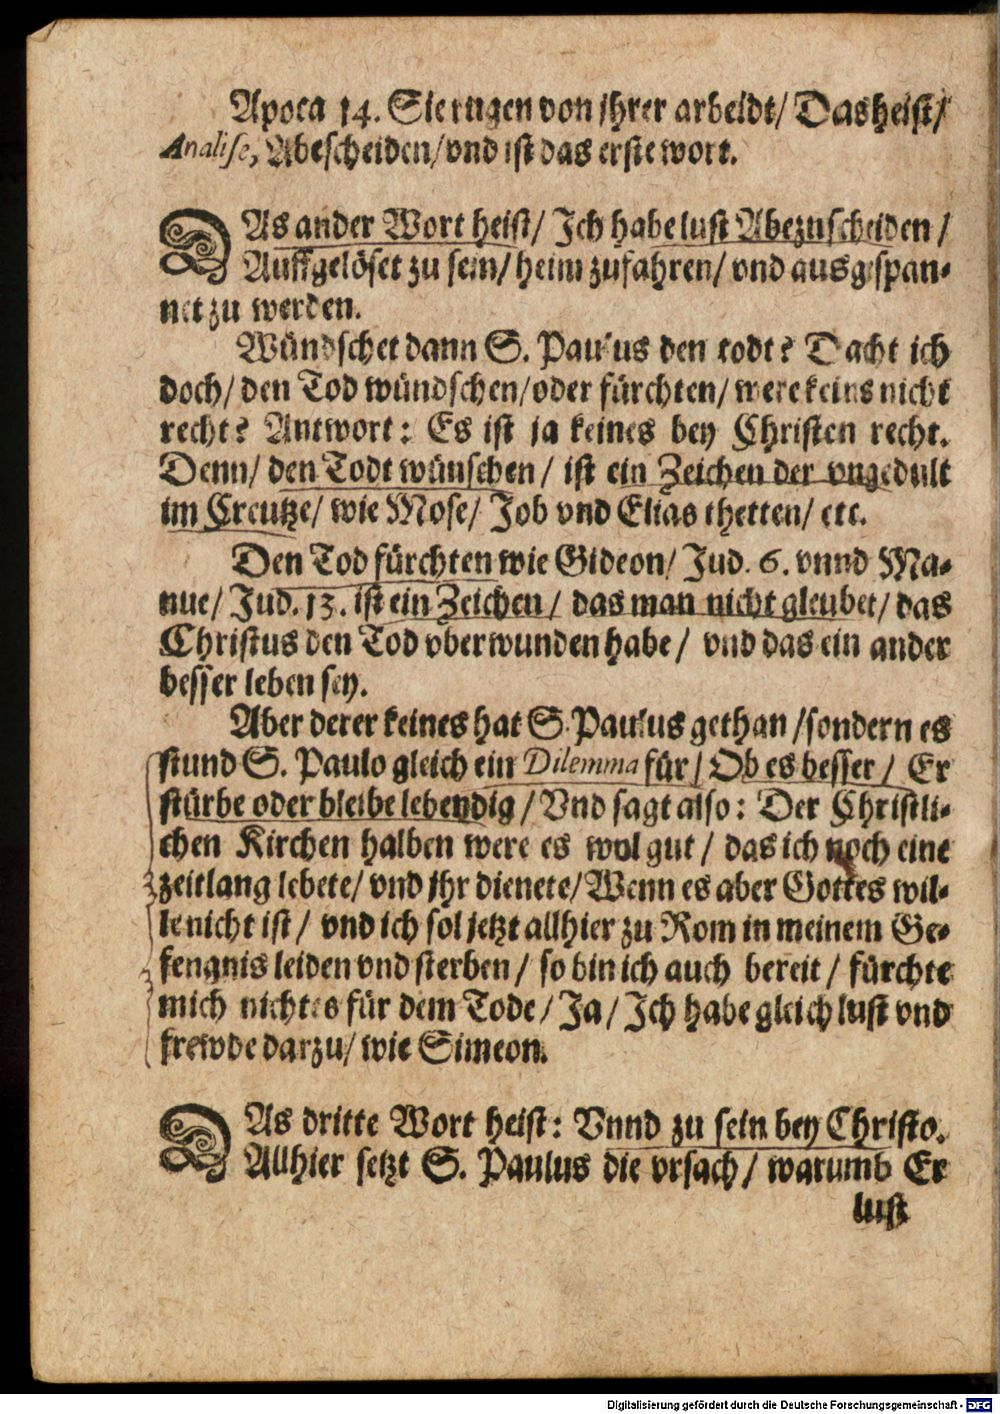 Apoca 14. Sie rugen von jhrer arbeidt/ Das heist/
Analise, Abescheiden/ vnd ist das erste wort.
DAs ander Wort heist/ Ich habe lust Abezuscheiden /
Auffgelöset zu sein/ heim zufahren/ vnd ausgespan-
net zu werden.
Wündschet dann S. Paulus den todt? Dacht ich
doch/ den Tod wündschen/ oder fürchten/ were keins nicht
recht? Antwort: Es ist ja keines bey Christen recht.
Denn/ den Todt wünschen/ ist ein Zeichen der vngedult
im Creutze/ wie Mose/ Job vnd Elias thetten/ etc.
Den Tod fürchten wie Gideon/ Jud. 6. vnnd Ma-
nue/ Jud. 13. ist ein Zeichen/ das man nicht gleubet/ das
Christus den Tod vberwunden habe/ vnd das ein ander
besser leben sey.
Aber derer keines hat S. Paulus gethan/ sondern es
stund S. Paulo gleich ein Dilemma für/ Ob es besser/ Er
stürbe oder bleibe lebendig/ Vnd sagt also: Der Christli-
chen Kirchen halben were es wol gut/ das ich noch eine
zeitlang lebete/ vnd jhr dienete/ Wenn es aber Gottes wil-
le nicht ist/ vnd ich sol jetzt allhier zu Rom in meinem Ge-
fengnis leiden vnd sterben/ so bin ich auch bereit/ fürchte
mich nichtes für dem Tode/ Ja/ Ich habe gleich lust vnd
frewde darzu/ wie Simeon.
DAs dritte Wort heist: Vnnd zu sein bey Christo.
Allhier setzt S. Paulus die vrsach/ warumb Er
lust
Digitalisierung gefördert durch die Deutsche Forschungsgemeinschaft - DFG